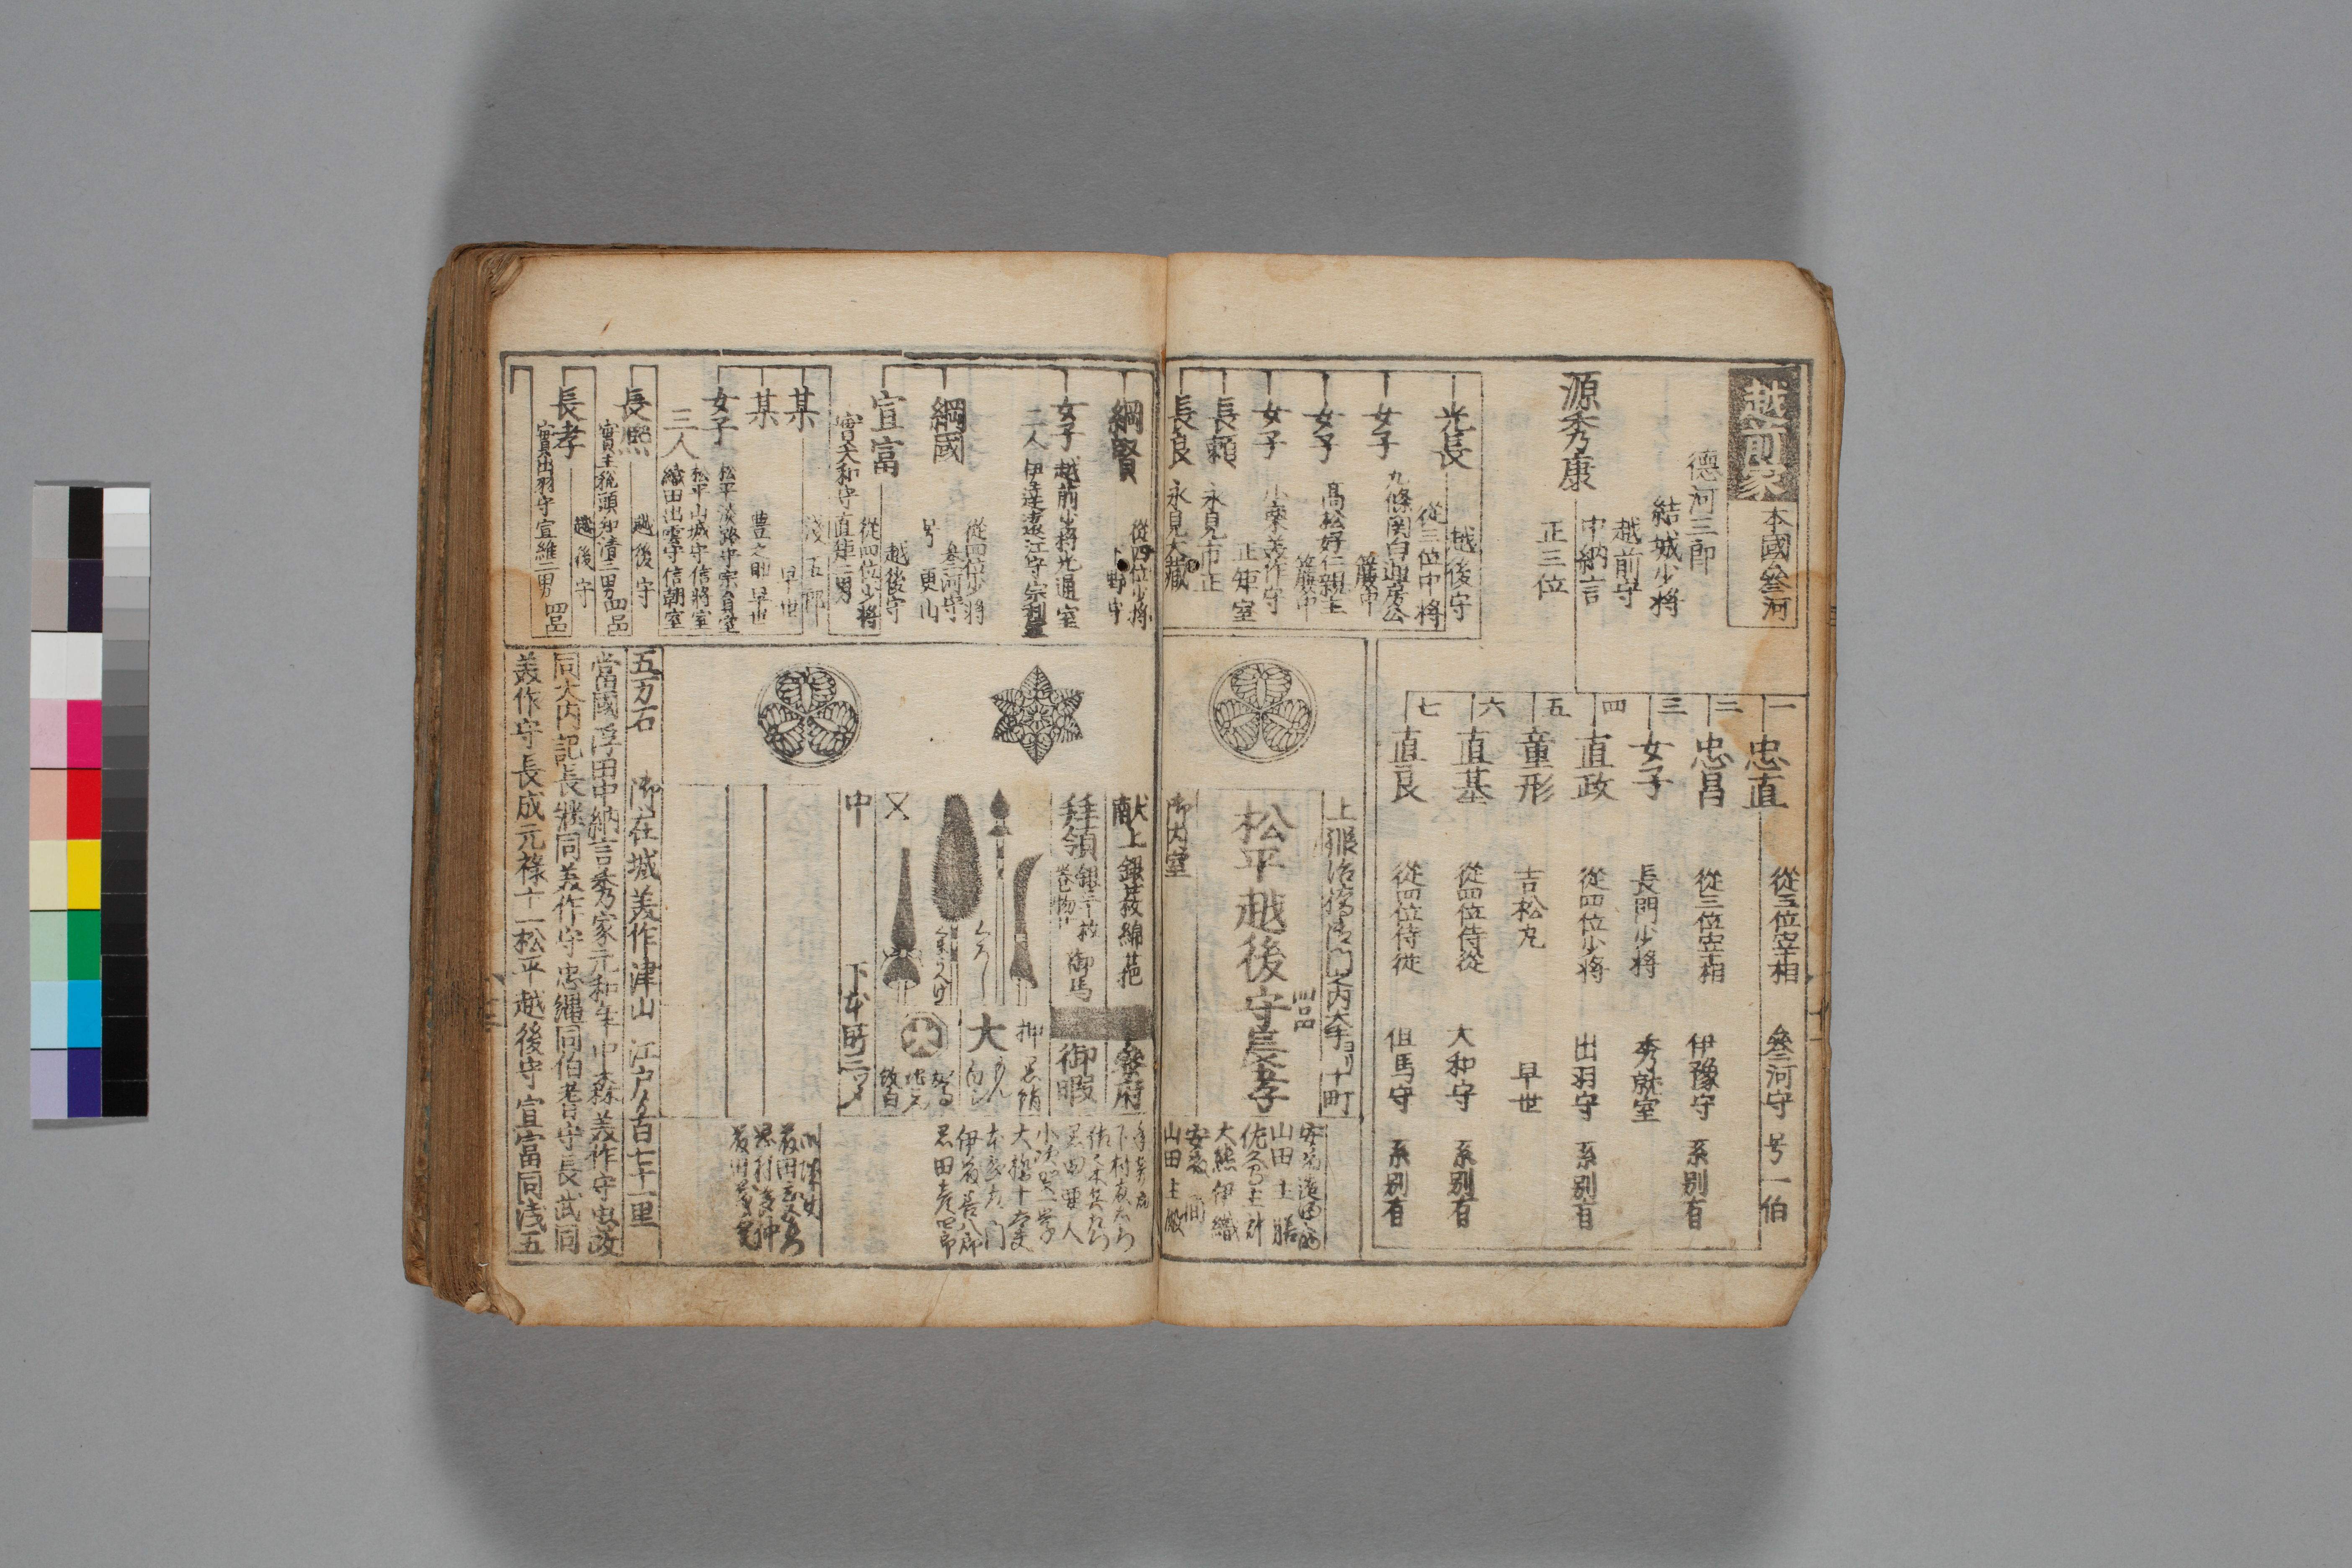 越前家
本國参河
源秀康
德河三郎
結城少将
越前守
中納言
正三位
一 忠直 從三位宰相 参河守 号一伯
二 忠昌 從三位宰相 伊豫守 系別有
三 女子 長門少将 秀就室
四 直政 從四位少将 出羽守 系別有
五 童形 吉松丸 早世
六 直基 從四位侍從 大和守 系別有
七 直良 從四位侍從 但馬守 系別有
光長 越後守
從三位中将
女子 九條関白道房公
簾中
女子 高松好仁親王
簾中
女子 小栗美作守
正矩室
長頼 永見市正
長良 永見大蔵
上 鍛冶橋御門之内大手ヨリ十町
松平越後守長孝
四品
御内室
安藤
山田主膳
佐久間主計
大熊伊織
山田主殿
綱賢 從四位少将
下野守
女子 越前少将光通室
二人 伊達遠江守宗利室
綱國 從四位少将
参河守
号 更山
宣富 越後守
從四位少将
實大和守直矩三男
某 浅五郎
早世
某 豊之助 早世
女子 松平淡路守宗員室
三人 松平山城守信将室
織田出雲守信朝室
長熈 越後守
實主税頭知清三男 四品
長孝 越後守
實出羽守宣維二男 四品
献上 銀 枚 綿 把
参府
拝領 銀 十枚 巻物 御馬
御暇
押 黒絹
大
中
下 本町三ツメ
黒田要人
大橋十太夫
伊藤善八郎
黒田彦四郎
五万石 御在城美作津山 江戸ヨリ百七十一里
當國浮田中納言秀家元和年中森美作守忠政
同大内記長継同美作守忠継同伯耆守長武同
美作守長成元禄十一松平越後守宣富同浅五